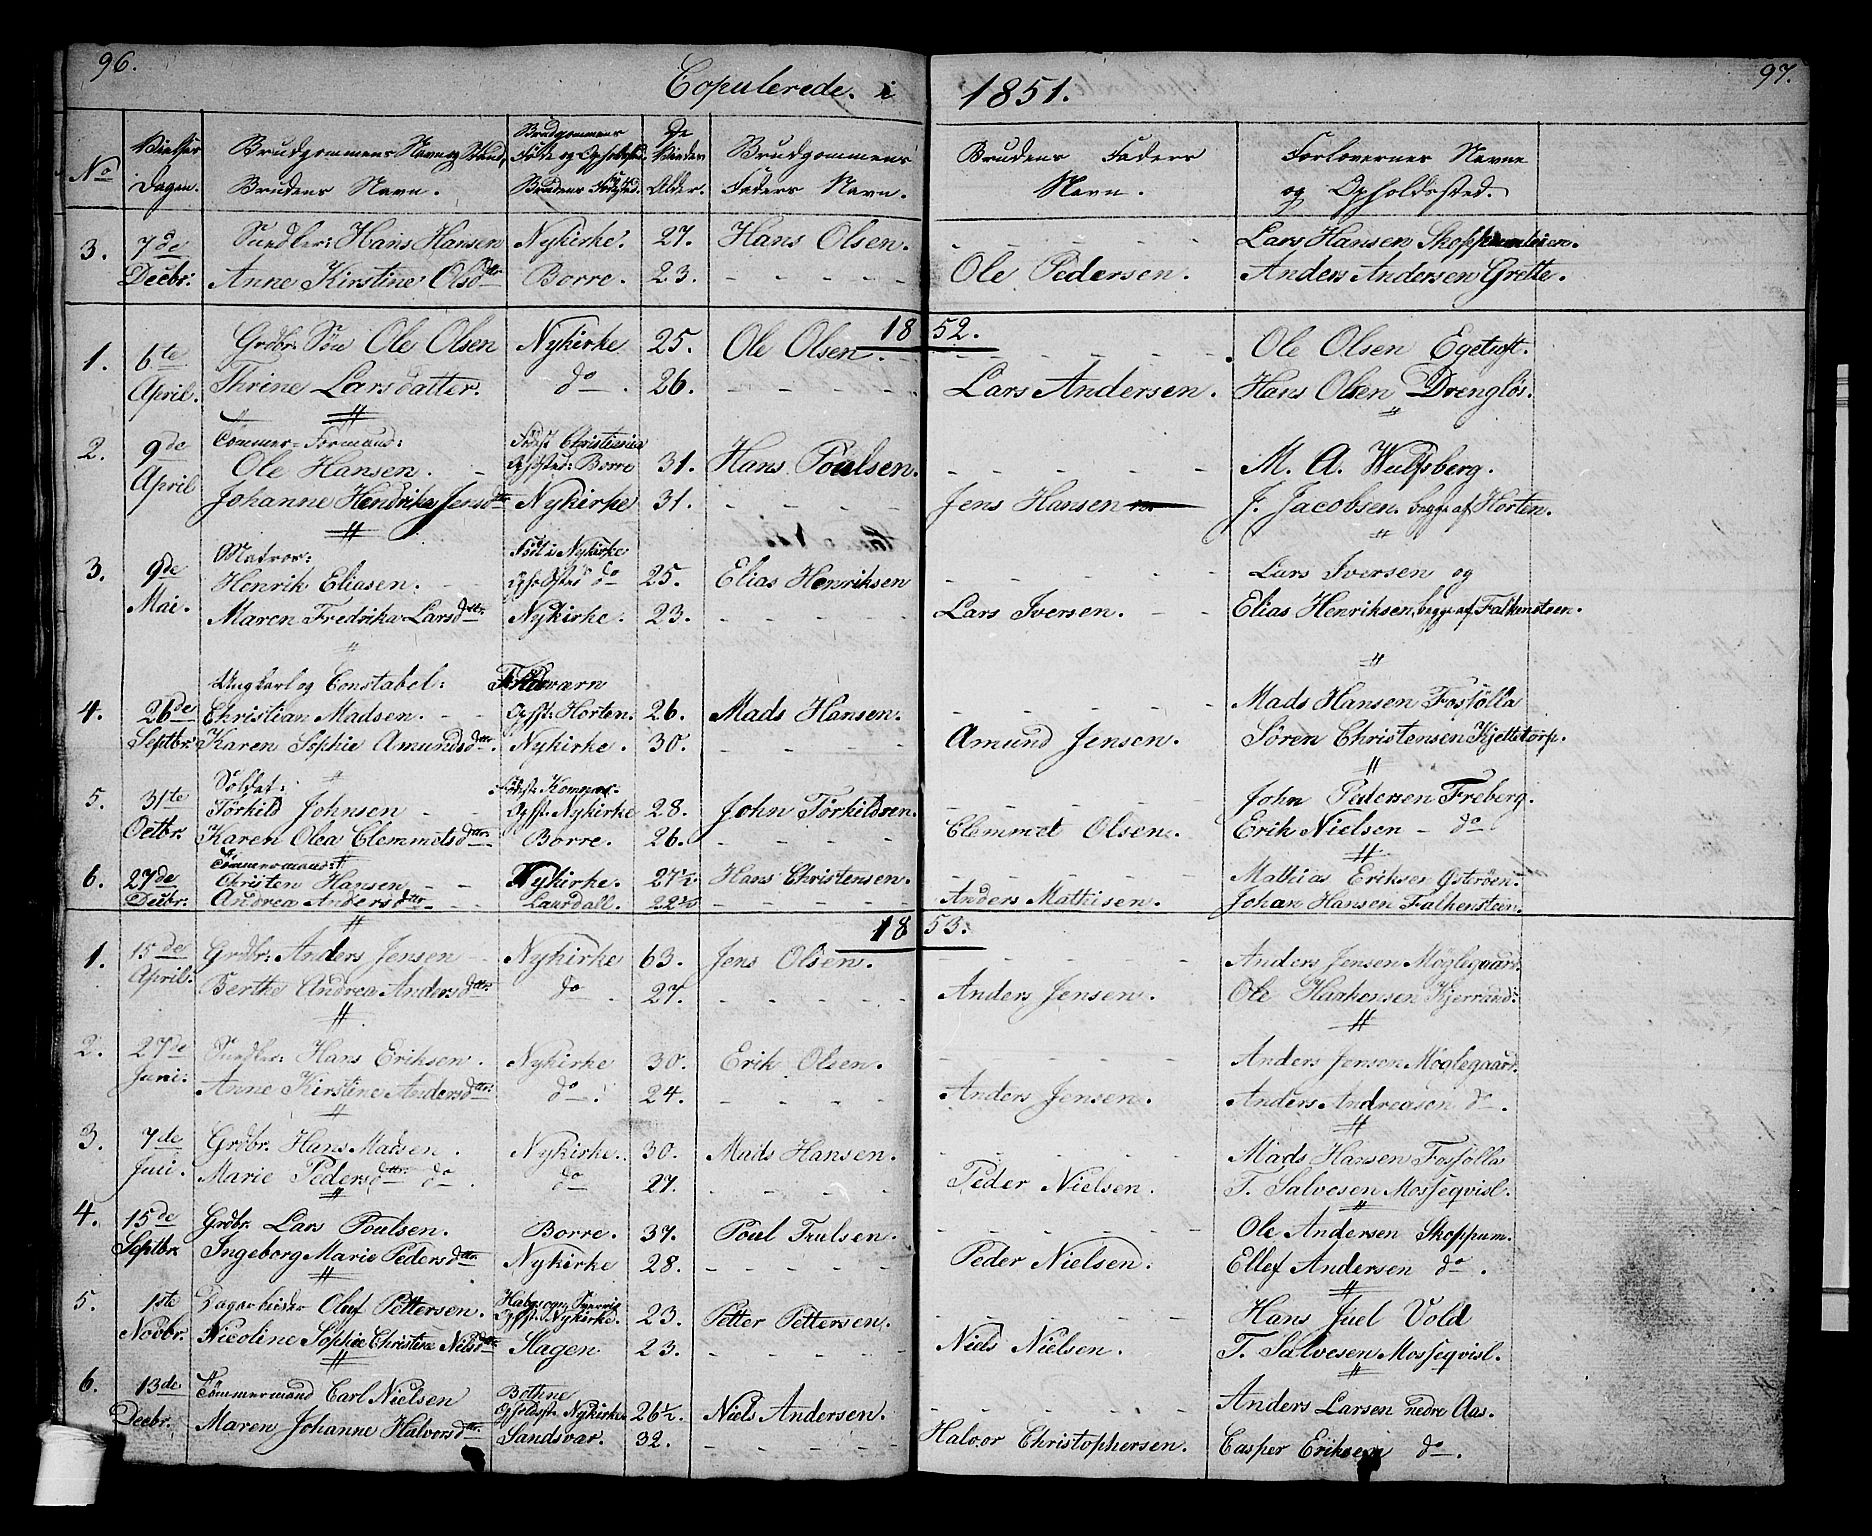 96.
Copulerede. i 1851.
97.
No
Vielses Dagen.
Brudgommens Navn og Stand, Brudens Navn.
Brudgommens Føde og Opholdsted. Brudens Fødested.
De Viedes Alder.
Brudgommens Faders Navn.
Brudens Faders Navn.
Forlovernes Navne og Opholdssted.
3. 7de Hans Hansen Nykirke. 27. Hans Olsen. Lars Hansen
Decbr. Anne Kirstine Olsdtr Borre. 23. Ole Pedersen. Anders Andersen Grette.
1852.
1. 6te Grdbr. Søn Ole Olsen Nykirke 25. Ole Olsen. Ole Olsen Egetuft.
April. Thrine Larsdatter. do. 26. Lars Andersen. Hans Olsen Drengløs.
2. 9de Tømmer-Formand: Fødst Christiania
April Ole Hansen. Opholdsted: Borre 31. Hans Poulsen. M. A. Wulfsberg.
Johanne Hendrika Jensdtr Nykirke 31. Jens Hansen J. Jacobsen. begge af Horten.
3. 9de Matros: Født i Nykirke
Mai. Henrik Eliasen. Opholdsted do 25. Elias Henriksen Lars Iversen og
Maren Fredrika Larsdtr Nykirke. 23. Lars Iversen. Elias Henriksen, begge af Falkensteen.
Ungkarl og Constabel:
4. 26de Christian Madsen. Opst: Horten. 26. Mads Hansen. Mads Hansen Fosfølla
Septbr. Karen Sophie Amundsdtr. Nykirke. 30. Amund Jensen. Søren Christensen Kjettetorp.
Soldat:
5. 31te Tørkild Johnsen Opst. Nykirke 28. John Tørkildsen. John Pedersen Freberg.
Octbr. Karen Olea Clemmetsdtr. Borre. 26. Clemmet Olsen. Erik Nielsen - do
Tømmermand:
6. 27de Christen Hansen Nykirke. 27½ Hans Christensen. Mathias Eriksen
Decbr. Andrea Andersdtr. Laurdall. Anders Mathisen. Johan Hansen Falkensteen.
1853.
1. 15de Grdbr: Anders Jensen Nykirke 63. Jens Olsen. Anders Jensen Møglegaard.
April. Berthe Andrea Andersdtr. do 27. Anders Jensen. Ole Haakensen
2. 27de Hans Eriksen. Nykirke 30. Erik Olsen. Anders Jensen Møglegaard.
Juni. Anne Kirstine Andersdtr. do. 24. Anders Jensen. Anders Andreasen do.
3. 7de Grdbr. Hans Madsen. Nykirke. 30. Mads Hansen. Mads Hansen Fosfølla
Juli. Marie Pedersdtr. do. do 27. Peder Nielsen. T. Salvesen Mosseqvisl.
4. 15de Grdbr. Lars Poulsen. Borre. 37. Poul Trulsen. Ole Andersen Skoppum.
Septbr. Ingeborg Marie Pedersdtr. Nykirke 28. Peder Nielsen. Ellef Andersen do.
5. 1ste Dagarbeider Oluf Pettersen. Opst. Nykirke. 23. Petter Pettersen. Hans Juel Vold
Novbr. Nicoline Sophie Christine Nilsdtr Slagen 23. Niels Nielsen. T. Salvesen Mosseqvisl.
6. 13de Tømmermand Carl Nielsen Bothne Opholdsst. Nykirke. 26½. Niels Andersen. Anders Larsen nedre Aas.
Decbr. Maren Johanne Halvorsdtr. Sandsvær. 32. Halvor Christophersen. Casper Eriksen do.